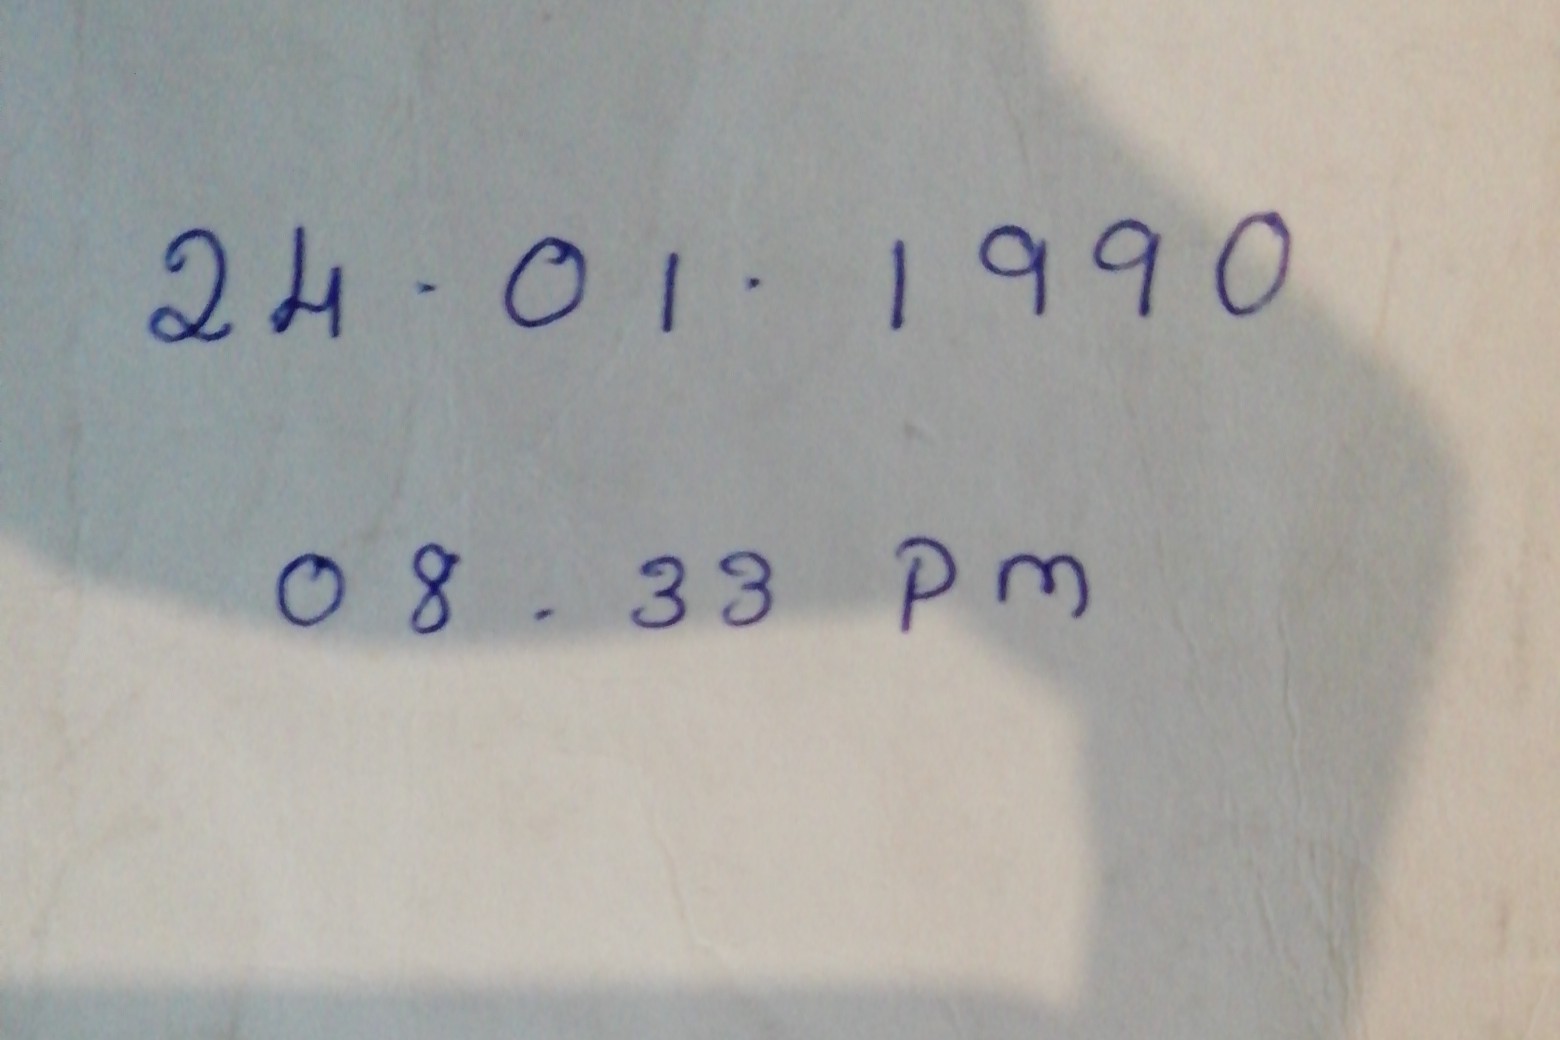 24.01.1990
08.33 Pm